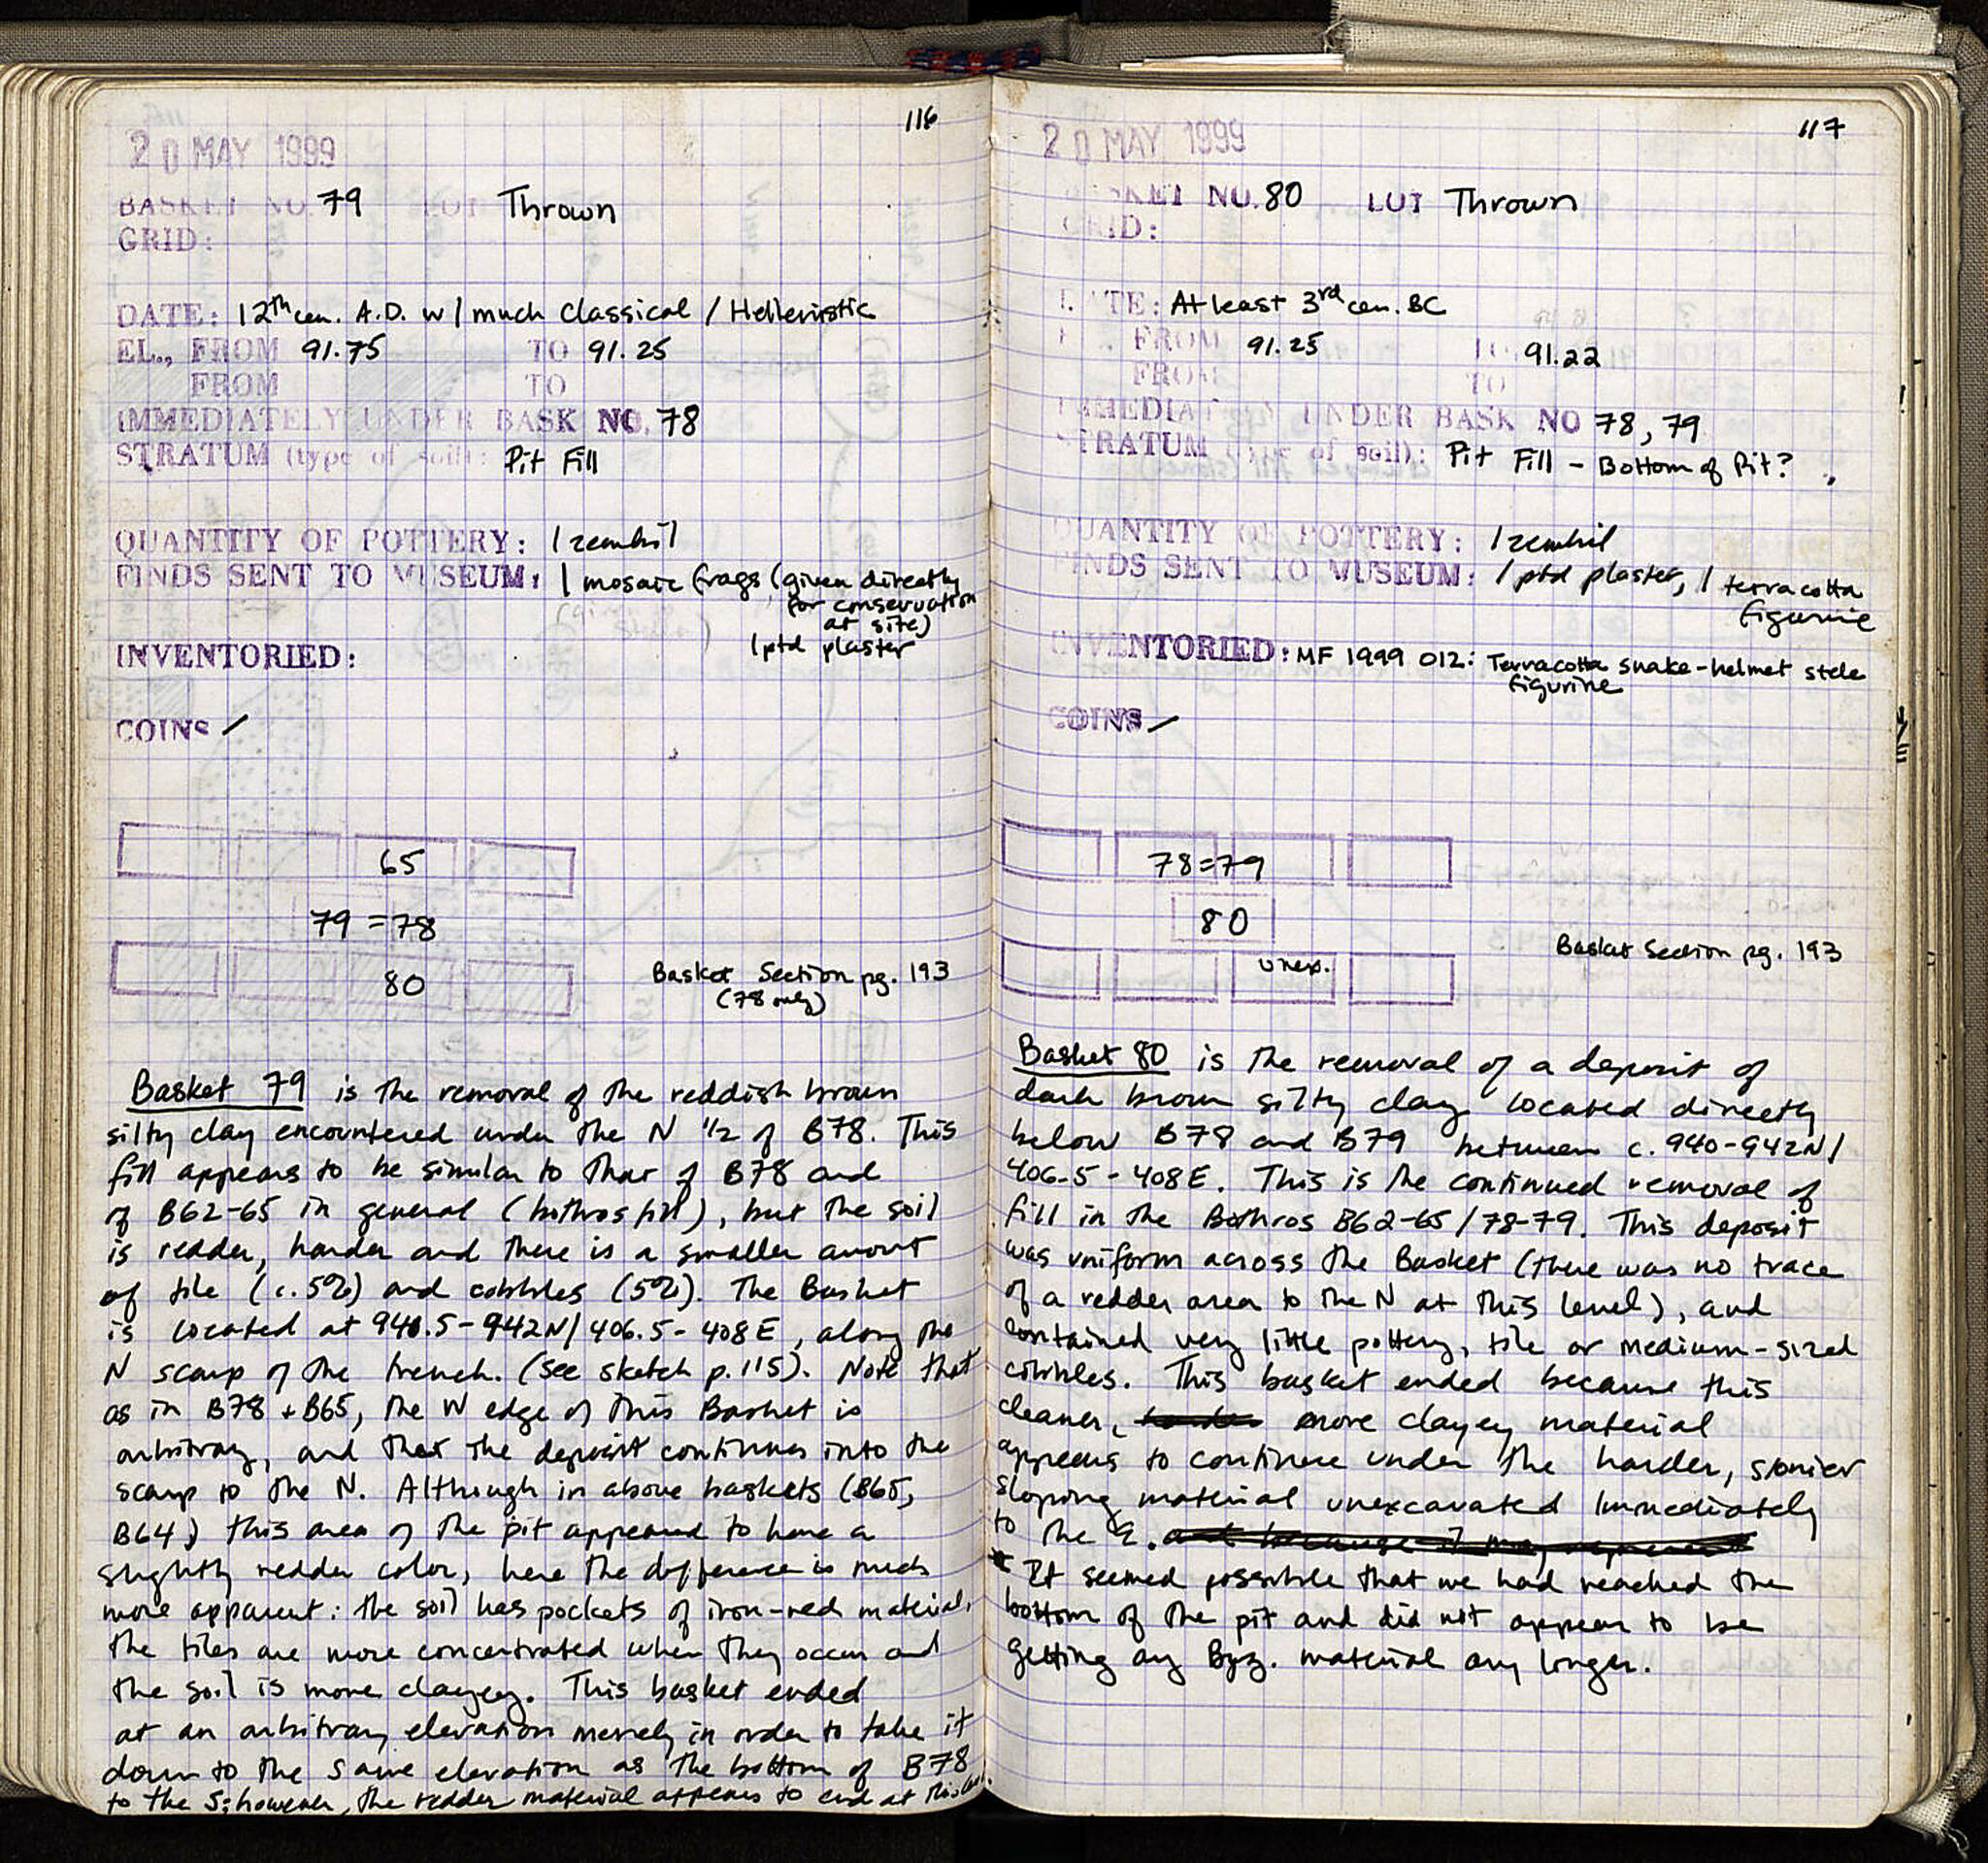 116
20 MAY 1999
BASKET NO. 79 LOT Thrown
GRID:
DATE: 12th cen. A.D. w/ much Classical / Hellenistic
EL., FROM 91.75 TO 91.25
FROM TO
IMMEDIATELY UNDER BASK NO. 78
STRATUM (type of soil): Pit Fill
QUANTITY OF POTTERY: 1 zembil
FINDS SENT TO MUSEUM: 1 mosaic frags (given directly
for conservation
at site)
1 ptd plaster
INVENTORIED:
COINS /
65
79 = 78
80
Basket Section pg. 193
(78 only)
Basket 79 is the removal of the reddish brown
silty clay encountered under the N 1/2 of B78. This
fill appears to be similar to that of B78 and
of B62-65 in general (bothros fill), but the soil
is redder, harder and there is a smaller amount
of tile (c. 5%) and cobbles (5%). The Basket
is located at 940.5-942N/406.5-408E, along the
N scarp of the trench. (see sketch p. 115). Note that
as in B78 + B65, the W edge of this Basket is
arbitrary, and that the deposit continues into the
scarp to the N. Although in above baskets (B65,
B64) this area of the pit appeared to have a
slightly redder color, here the difference is much
more apparent: the soil has pockets of iron-red material,
the tiles are more concentrated when they occur and
the soil is more clayey. This basket ended
at an arbitrary elevation merely in order to take it
down to the same elevation as the bottom of B78
to the S; however, the redder material appears to end at this level.
117
20 MAY 1999
BASKET NO. 80 LOT Thrown
GRID:
DATE: At least 3rd cen. BC
FROM 91.25 TO 91.22
FROM TO
IMMEDIATELY UNDER BASK NO 78, 79
STRATUM (type of soil): Pit Fill - Bottom of Pit?
QUANTITY OF POTTERY: 1 zembil
FINDS SENT TO MUSEUM: 1 ptd plaster, 1 terracotta
figurine
INVENTORIED: MF 1999 012: Terracotta snake-helmet stele
figurine
COINS /
78=79
80
unex.
Basket Section pg. 193
Basket 80 is the removal of a deposit of
dark brown silty clay located directly
below B78 and B79 between c. 940-942N/
406.5-408E. This is the continued removal of
fill in the Bothros B62-65/78-79. This deposit
was uniform across the Basket (there was no trace
of a redder area to the N at this level), and
contained very little pottery, tile or medium-sized
cobbles. This basket ended because this
cleaner, harder more clayey material
appears to continue under the harder, stonier
sloping material unexcavated immediately
to the E. and because it may represent
It seemed possible that we had reached the
bottom of the pit and did not appear to be
getting any Byz. material any longer.